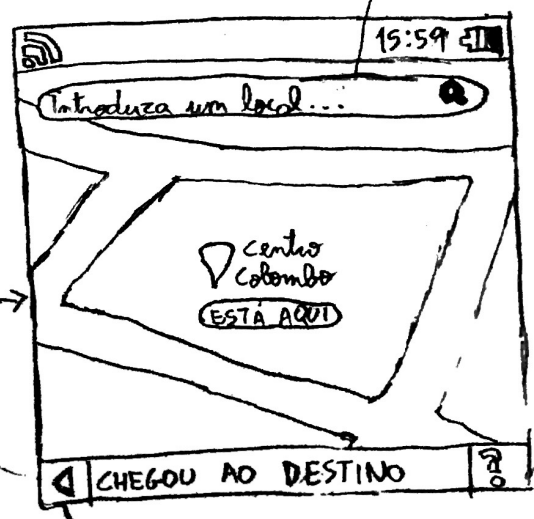 15:59
Introduza um local...
Centro
Colombo
ESTÁ AQUI
CHEGOU AO DESTINO